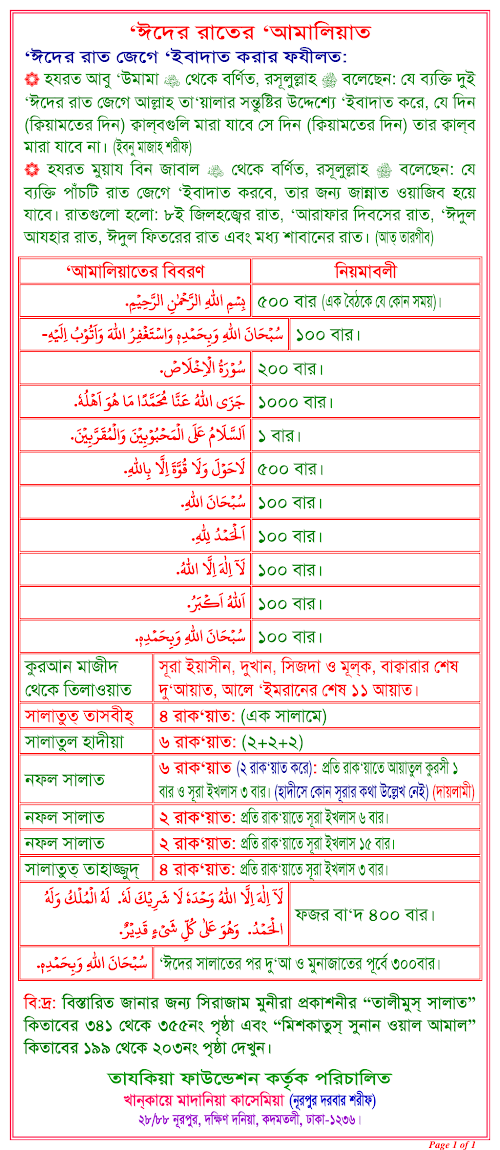 ‘ঈদের রাতের ‘আমালিয়াত
‘ঈদের রাত জেগে ‘ইবাদাত করার ফযীলত:
হযরত আবু ‘উমামা থেকে বর্ণিত, রসূলুল্লাহ ﷺ বলেছেন: যে ব্যক্তি দুই
‘ঈদের রাত জেগে আল্লাহ তা‘য়ালার সন্তুষ্টির উদ্দেশ্যে ‘ইবাদাত করে, যে দিন
(ক্বিয়ামতের দিন) ক্বাল্‌বগুলি মারা যাবে সে দিন (ক্বিয়ামতের দিন) তার ক্বাল্‌ব
মারা যাবে না। (ইবনু মাজাহ শরীফ)
হযরত মুয়ায বিন জাবাল থেকে বর্ণিত, রসূলুল্লাহ ﷺ বলেছেন: যে
ব্যক্তি পাঁচটি রাত জেগে ‘ইবাদাত করবে, তার জন্য জান্নাত ওয়াজিব হয়ে
যাবে। রাতগুলো হলো: ৮ই জিলহজ্বের রাত, ‘আরাফার দিবসের রাত, ‘ঈদুল
আযহার রাত, ঈদুল ফিতরের রাত এবং মধ্য শাবানের রাত। (আত্ তারগীব)
‘আমালিয়াতের বিবরণ নিয়মাবলী
بِسْمِ اللهِ الرَّحْمٰنِ الرَّحِيْمِ. ৫০০ বার (এক বৈঠকে যে কোন সময়)।
سُبْحَانَ اللهِ وَبِحَمْدِهٖ وَاسْتَغْفِرُ اللهَ وَاَتُوْبُ اِلَيْهِ- ১০০ বার।
سُوْرَةُ الْاِخْلَاصْ. ২০০ বার।
جَزَى اللهُ عَنَّا مُحَمَّدًا مَا هُوَ اَهْلُهٗ. ১০০০ বার।
اَلسَّلَامُ عَلَى الْمَحْبُوْبِيْنَ وَالْمُقَرَّبِيْنَ. ১ বার।
لَاحَوْلَ وَلَا قُوَّةَ اِلَّا بِاللهِ. ৫০০ বার।
سُبْحَانَ اللهِ. ১০০ বার।
اَلْحَمْدُ لِلّٰهِ. ১০০ বার।
لَآ اِلٰهَ اِلَّا اللهُ. ১০০ বার।
اَللهُ اَكْبَرُ. ১০০ বার।
سُبْحَانَ اللهِ وَبِحَمْدِهٖ. ১০০ বার।
কুরআন মাজীদ সূরা ইয়াসীন, দুখান, সিজদা ও মূল্‌ক, বাক্বারার শেষ
থেকে তিলাওয়াত দু‘আয়াত, আলে ‘ইমরানের শেষ ১১ আয়াত।
সালাতুত্ তাসবীহ্ ৪ রাক‘য়াত: (এক সালামে)
সালাতুল হাদীয়া ৬ রাক‘য়াত: (২+২+২)
নফল সালাত ৬ রাক‘য়াত (২ রাক‘য়াত করে): প্রতি রাক‘য়াতে আয়াতুল কুরসী ১
বার ও সূরা ইখলাস ৩ বার। (হাদীসে কোন সূরার কথা উল্লেখ নেই) (দায়লামী)
নফল সালাত ২ রাক‘য়াত: প্রতি রাক‘য়াতে সূরা ইখলাস ৬ বার।
নফল সালাত ২ রাক‘য়াত: প্রতি রাক‘য়াতে সূরা ইখলাস ১৫ বার।
সালাতুত্ তাহাজ্জুদ্ ৪ রাক‘য়াত: প্রতি রাক‘য়াতে সূরা ইখলাস ৩ বার।
لَآ اِلٰهَ اِلَّا اللهُ وَحْدَهٗ لَا شَرِيْكَ لَهٗ. لَهُ الْمُلْكُ وَلَهُ
الْحَمْدُ. وَهُوَ عَلٰى كُلِّ شَىْءٍ قَدِيْرٌ. ফজর বা‘দ ৪০০ বার।
سُبْحَانَ اللهِ وَبِحَمْدِهٖ. ‘ঈদের সালাতের পর দু‘আ ও মুনাজাতের পূর্বে ৩০০বার।
বি:দ্র: বিস্তারিত জানার জন্য সিরাজাম মুনীরা প্রকাশনীর “তালীমুস্ সালাত”
কিতাবের ৩৪১ থেকে ৩৫৫নং পৃষ্ঠা এবং “মিশকাতুস্ সুনান ওয়াল আমাল”
কিতাবের ১৯৯ থেকে ২০৩নং পৃষ্ঠা দেখুন।
তাযকিয়া ফাউন্ডেশন কর্তৃক পরিচালিত
খান্‌কায়ে মাদানিয়া কাসেমিয়া (নূরপুর দরবার শরীফ)
২৮/৮৮ নূরপুর, দক্ষিণ দনিয়া, কদমতলী, ঢাকা-১২৩৬।
Page 1 of 1